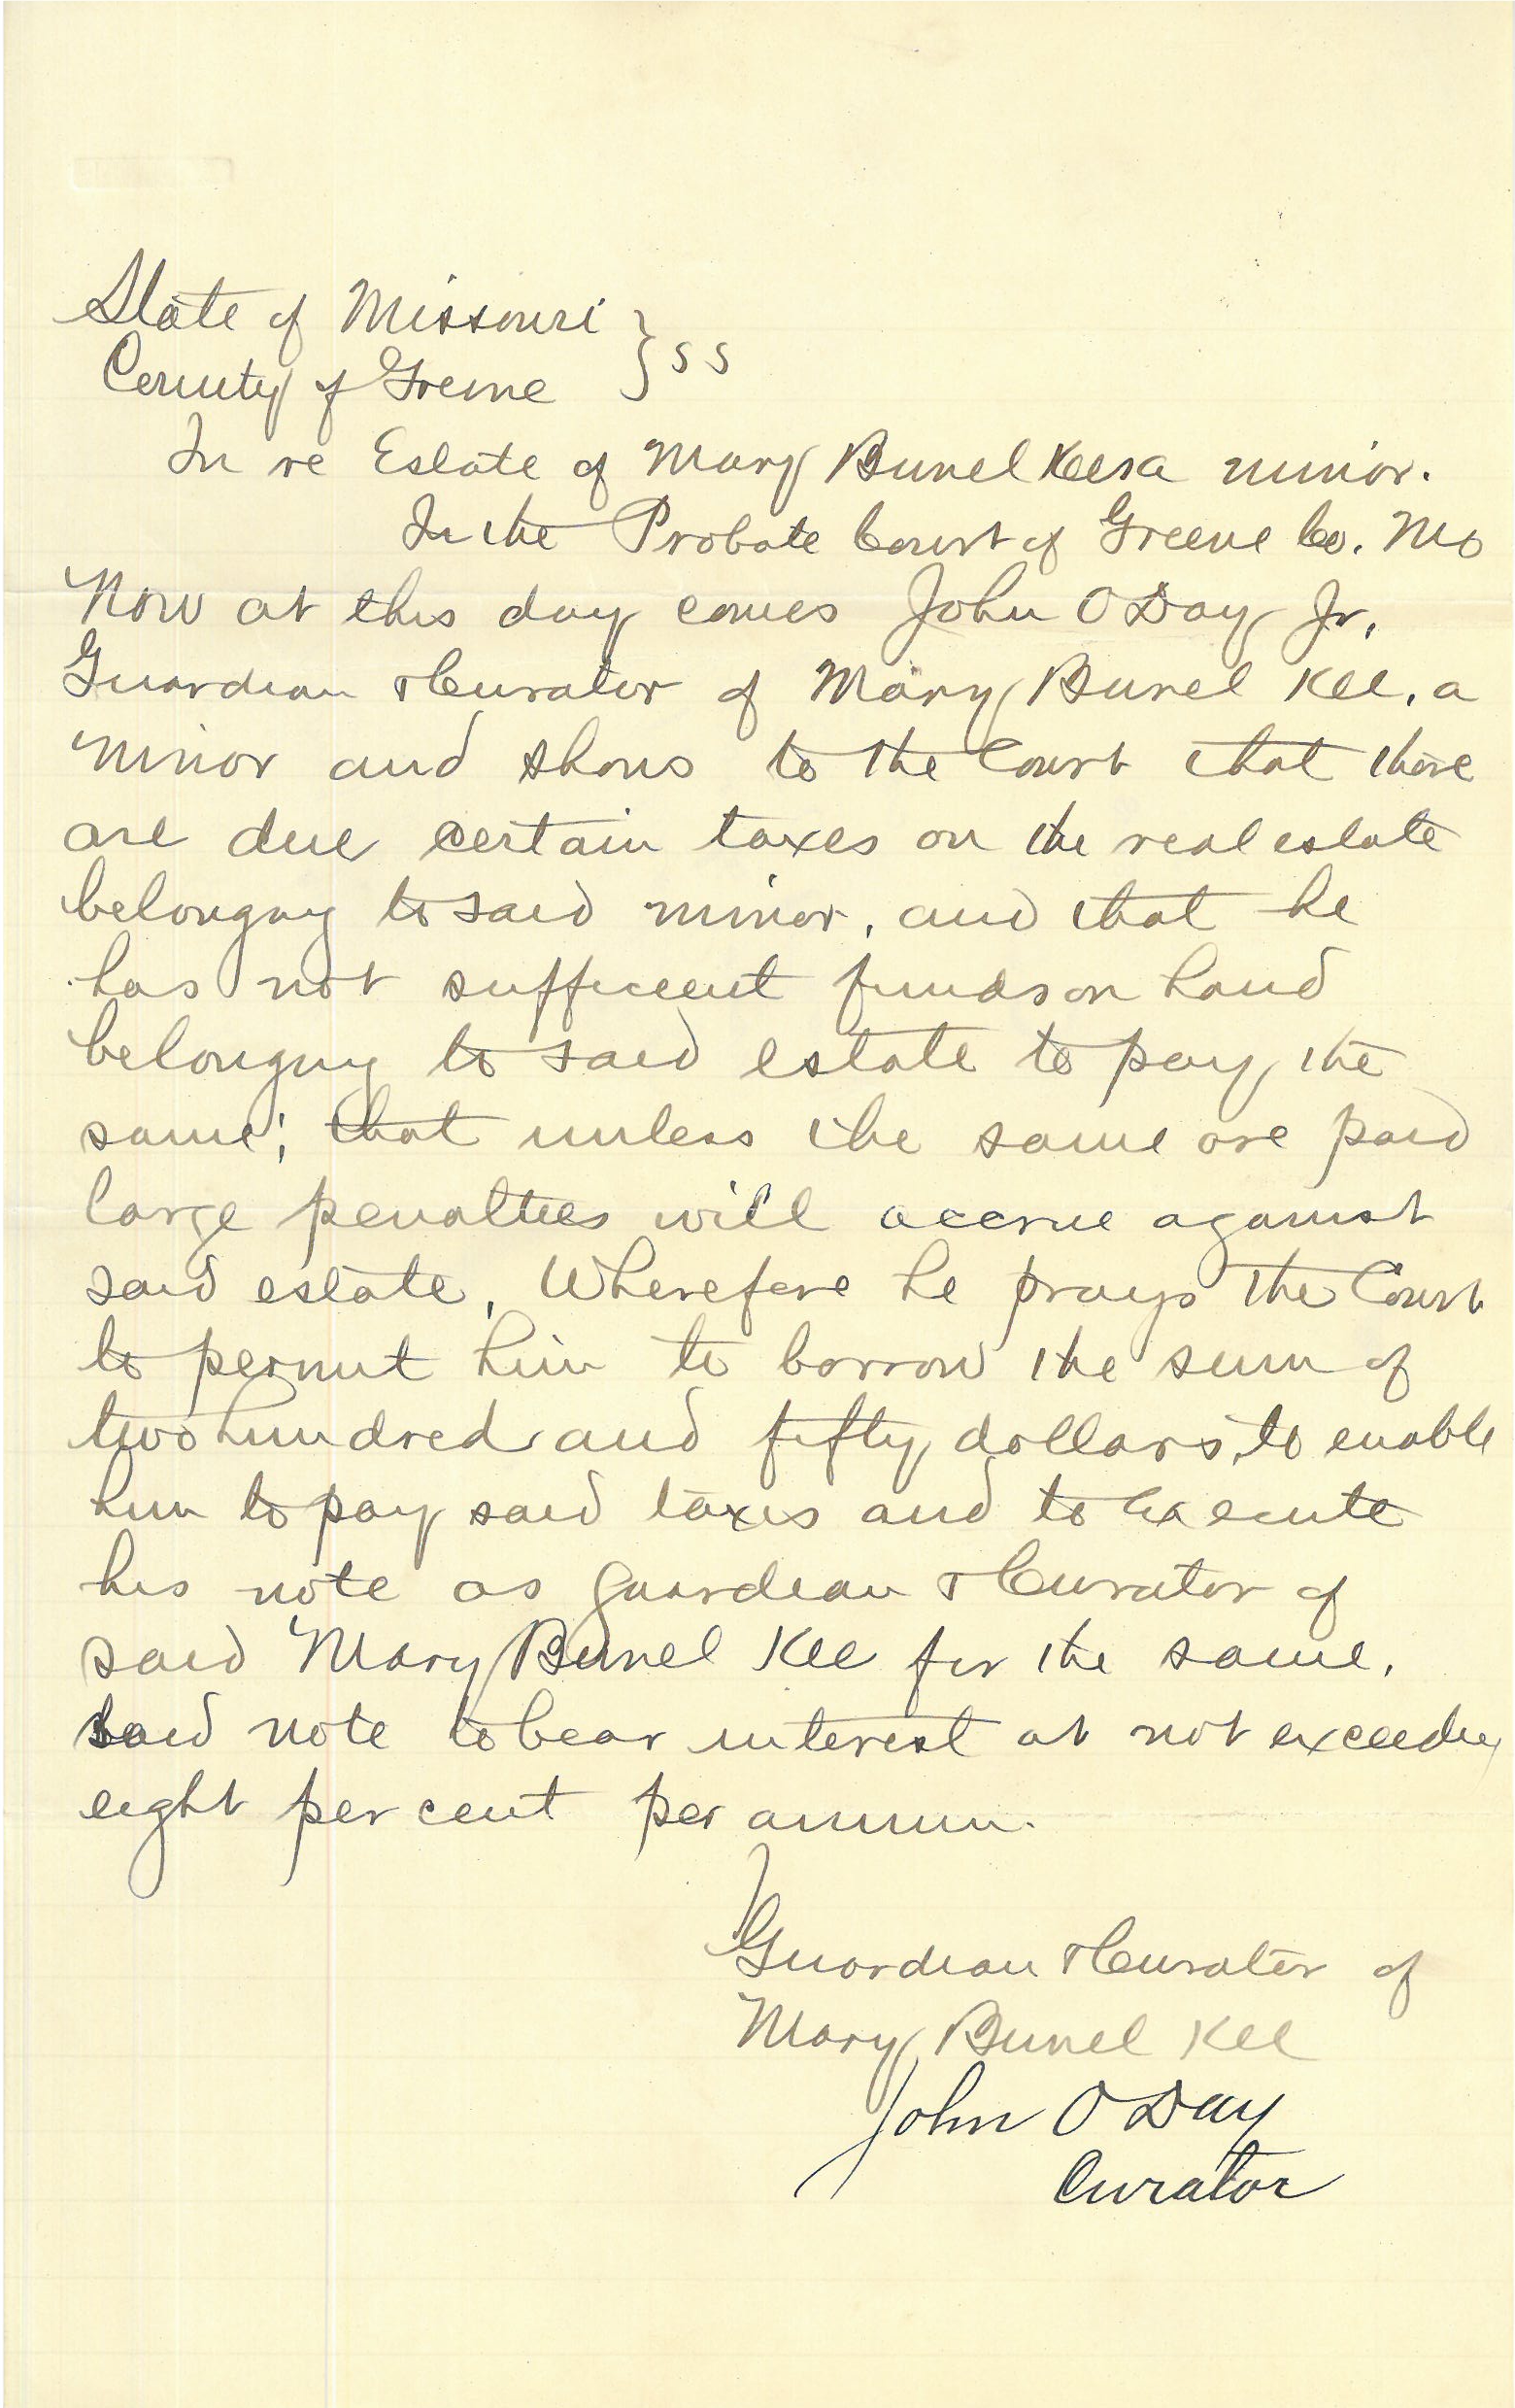 State of Missouri } ss
County of Greene
In re Estate of Mary Bunel Kee a minor.
In the Probate Court of Greene Co. Mo
Now at this day comes John O Day Jr.
Guardian & Curator of Mary Bunel Kee, a
minor and shows to the Court that there
are due certain taxes on the real estate
belonging to said minor, and that he
has not sufficient funds on hand
belonging to said estate to pay the
same; that unless the same are paid
large penalties will accrue against
said estate. Wherefore he prays the Court
to permit him to borrow the sum of
two hundred and fifty dollars, to enable
him to pay said taxes and to execute
his note as guardian & Curator of
said Mary Bunel Kee for the same.
said note to bear interest at not exceeding
eight per cent per annum.
Guardian & Curator of
Mary Bunel Kee
John O Day
Curator